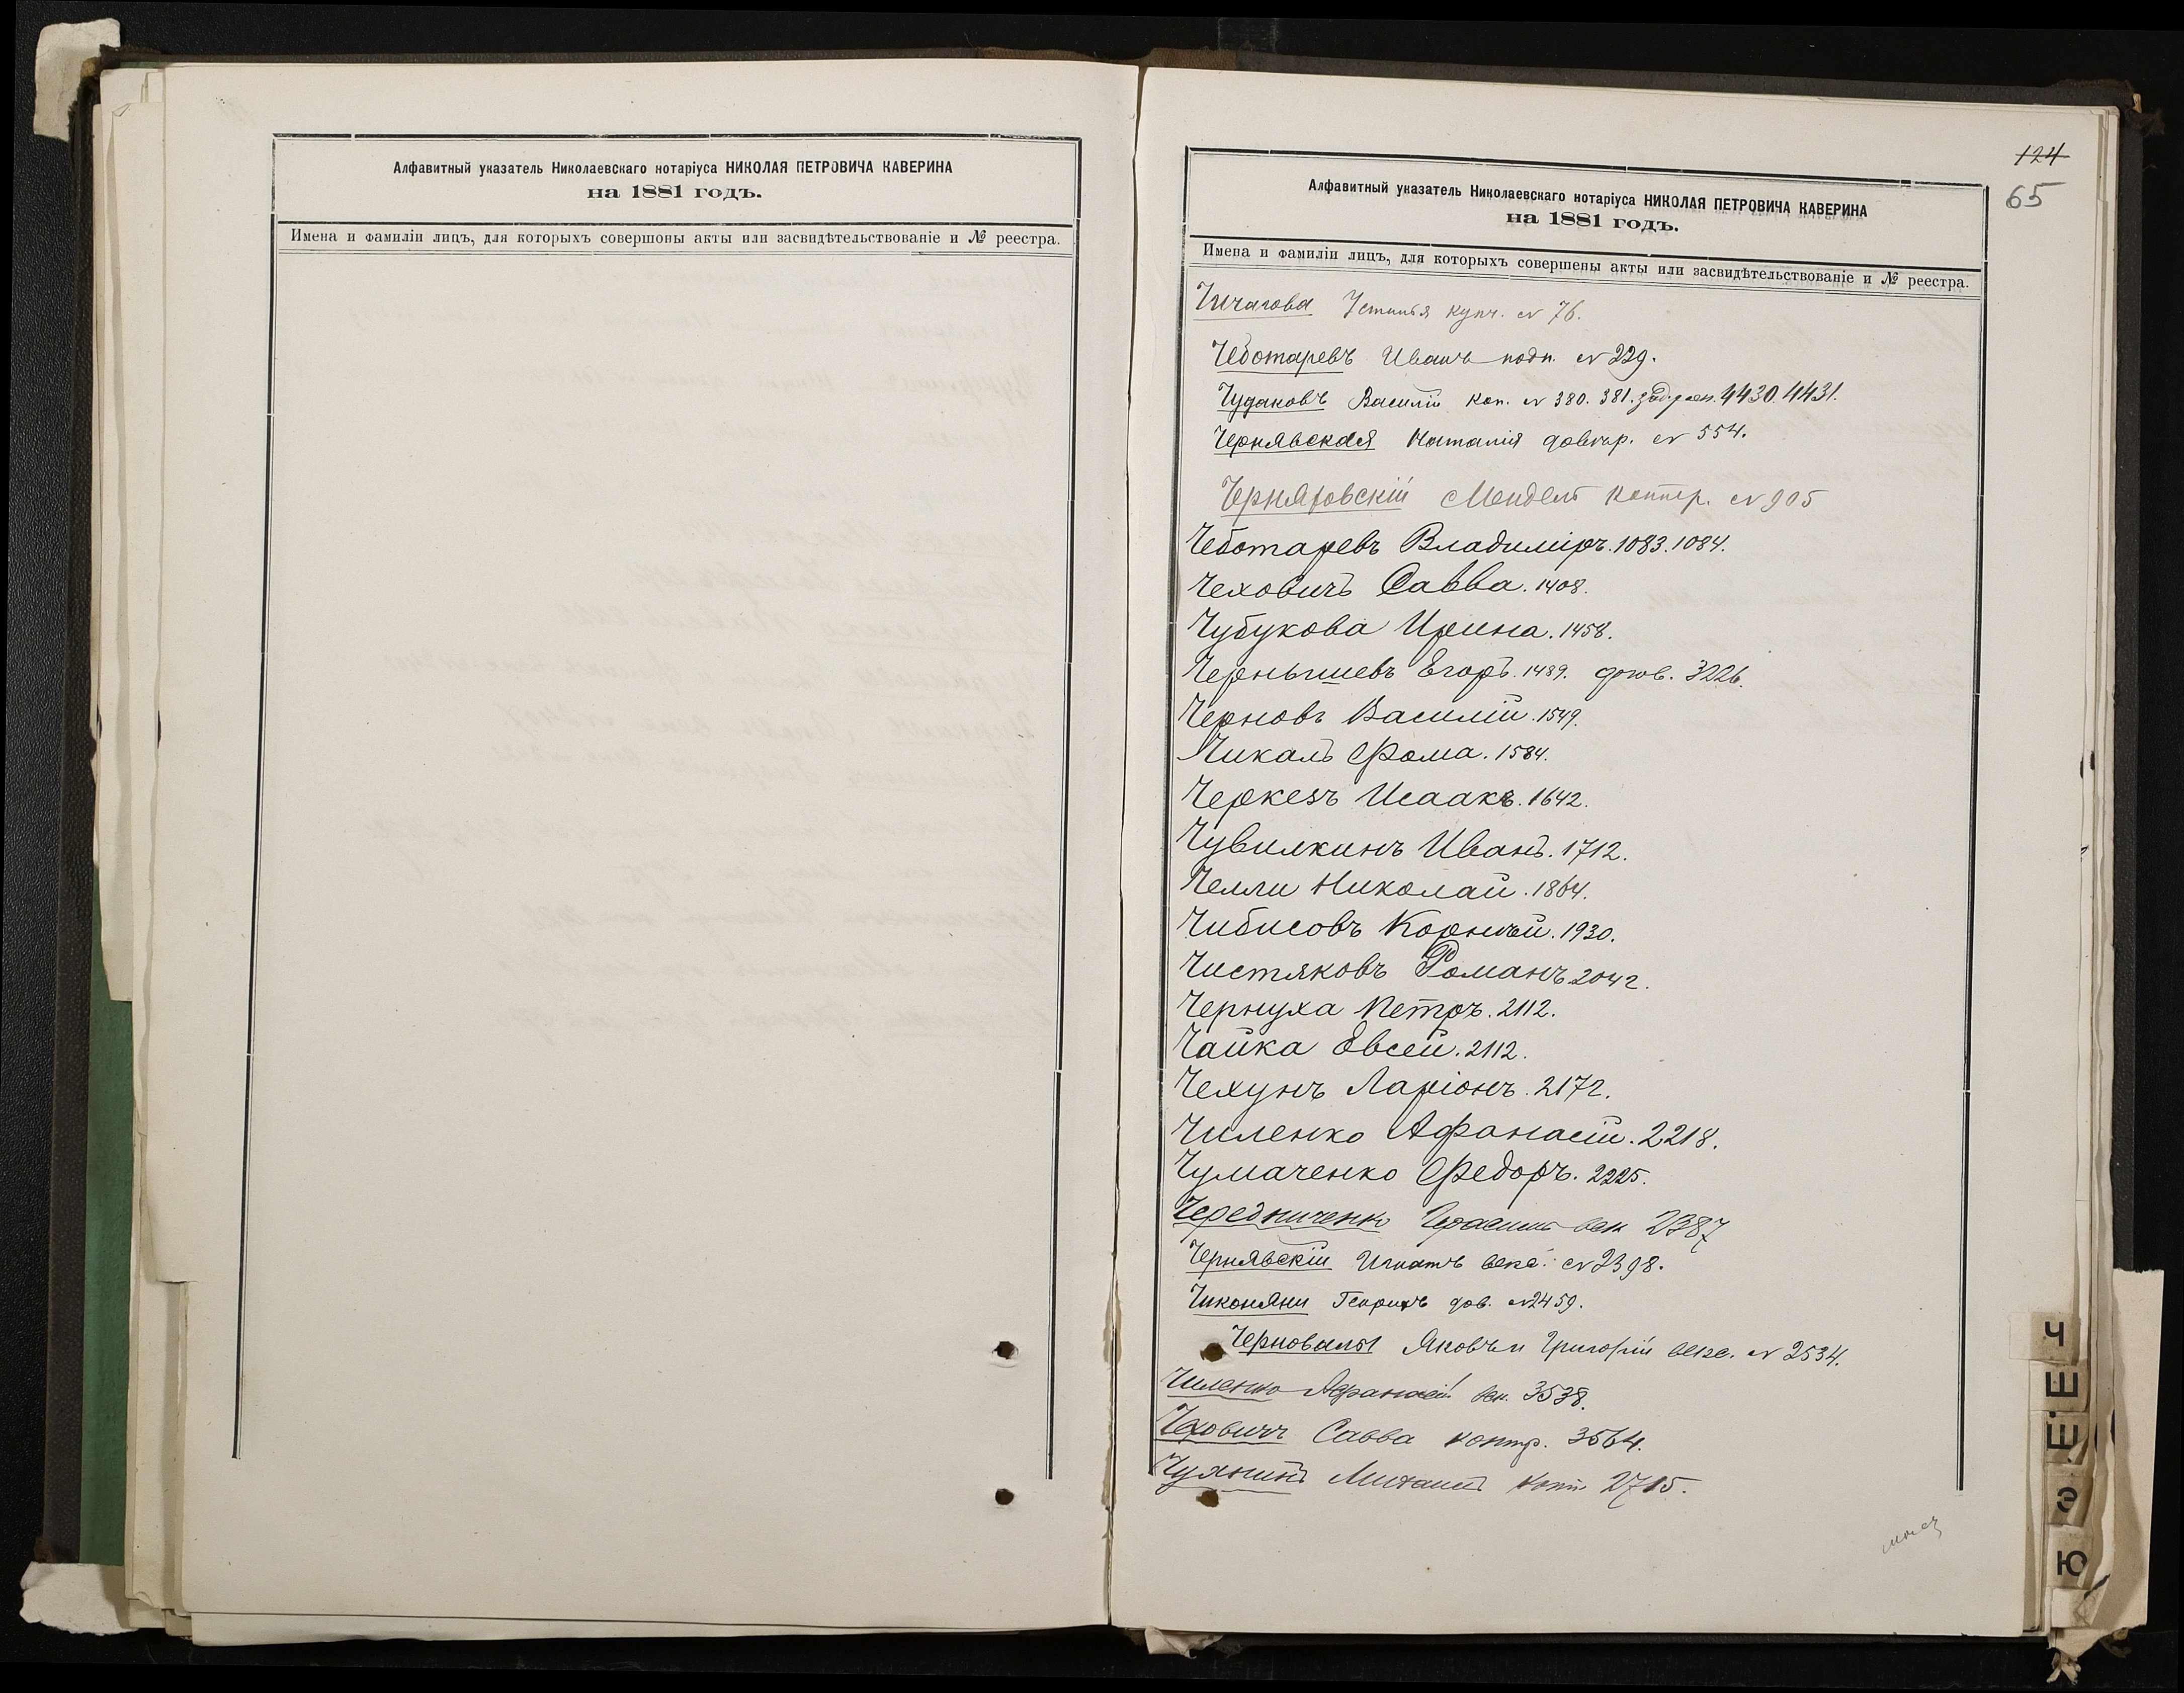 Алфавитный указатель Николаевскаго нотаріуса НИКОЛАЯ ПЕТРОВИЧА КАВЕРИНА
на 1881 годъ.
Имена и фамиліи лицъ, для которыхъ совершоны акты или засвидѣтельствованіе и № реестра.
124
65
Алфавитный указатель Николаевскаго нотаріуса НИКОЛАЯ ПЕТРОВИЧА КАВЕРИНА
на 1881 годъ.
Имена и фамиліи лицъ, для которыхъ совершены акты или засвидѣтельствованіе и № реестра.
Чичагова Устинья купч. № 76.
Чеботаревъ Иванъ подп. № 229.
Чудаковъ Василій коп. № 380. 381. 4430. 4431.
Чернявская Наталія довѣр. № 554.
Черняховскій Мендель контр. № 905
Чеботаревъ Владиміръ. 1083. 1084.
Чеховичъ Савва. 1408.
Чубукова Ирина. 1458.
Чернышевъ Егоръ. 1489. дов. 3226.
Черновъ Василій. 1549.
Чикалъ Фома. 1584.
Черкезъ Исаакъ. 1642.
Чувилкинъ Иванъ. 1712.
Челли Николай. 1864.
Чибисовъ Корнѣй. 1930.
Чистяковъ Романъ 2042.
Чернуха Петръ. 2112.
Чайка Евсей. 2112.
Чехунъ Ларіонъ. 2172.
Чиленко Афанасій. 2218.
Чумаченко Федоръ. 2225.
Чередниченко Герасимъ век 2387
Чернявскій Игнатъ векс. № 2398.
Чикошяни Генрихъ дов. № 2459.
Черновалы Яковъ и Григорій векс. № 2534.
Чиленко Афанасій век. 3538.
Чеховичъ Савва контр. 3564.
Михаилъ копт 2715.
Ч
Ш
Щ
Э
Ю